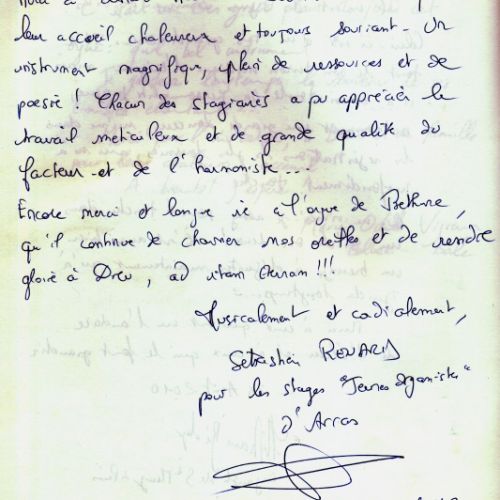 leur accueil chaleureux et toujours souriant. Un
instrument magnifique, plein de ressources et de
poésie ! Chacun des stagiaires a pu apprécier le
travail méticuleux et de grande qualité du
facteur et de l'harmoniste...
Encore merci et longue vie à l'orgue de Béthune,
qu'il continue de charmer nos oreilles et de rendre
gloire à Dieu, ad vitam eternam !!!
Musicalement et cordialement,
Sébastien RENARD
pour les stages "Jeunes organistes"
d'Arras